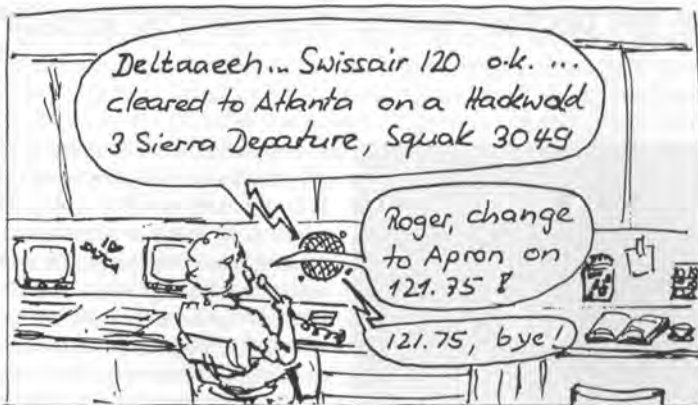 Deltaaeeh... Swissair 120 o.k. ...
cleared to Atlanta on a Hackwald
3 Sierra Departure, Squak 3049
Roger, change
to Apron on
121.75 !
121.75, bye!